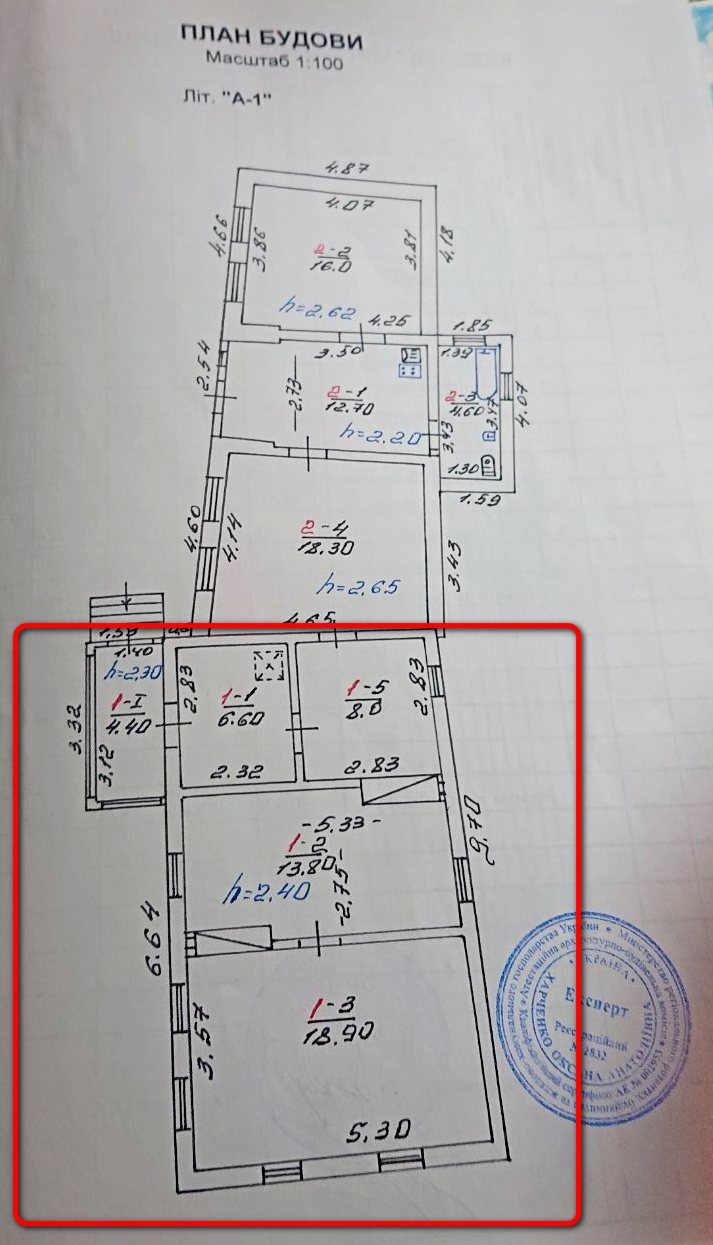 ПЛАН БУДОВИ
Масштаб 1:100
Літ. "А-1"
4.87
4.07
4.66
3.86
2-2
16.0
3.81
4.18
h=2.62
4.25
1.85
3.50
1.39
2.54
2.73
2-1
12.70
2-3
4.60
3.47
4.07
h=2.20
3.43
1.30
1.59
4.60
4.14
2-4
18.30
3.43
h=2.65
4.65
1.40
h=2.30
2.83
1-1
6.60
1-5
8.0
2.83
3.32
1-I
4.40
3.12
2.32
2.83
-5.33-
1-2
13.80
9.70
h=2.40
-2.75-
6.64
3.57
1-3
18.90
5.30
УКРАЇНА
Експерт
Реєстраційний
2832
ХАРЧЕНКО ОКСАНА АНАТОЛІЇВНА